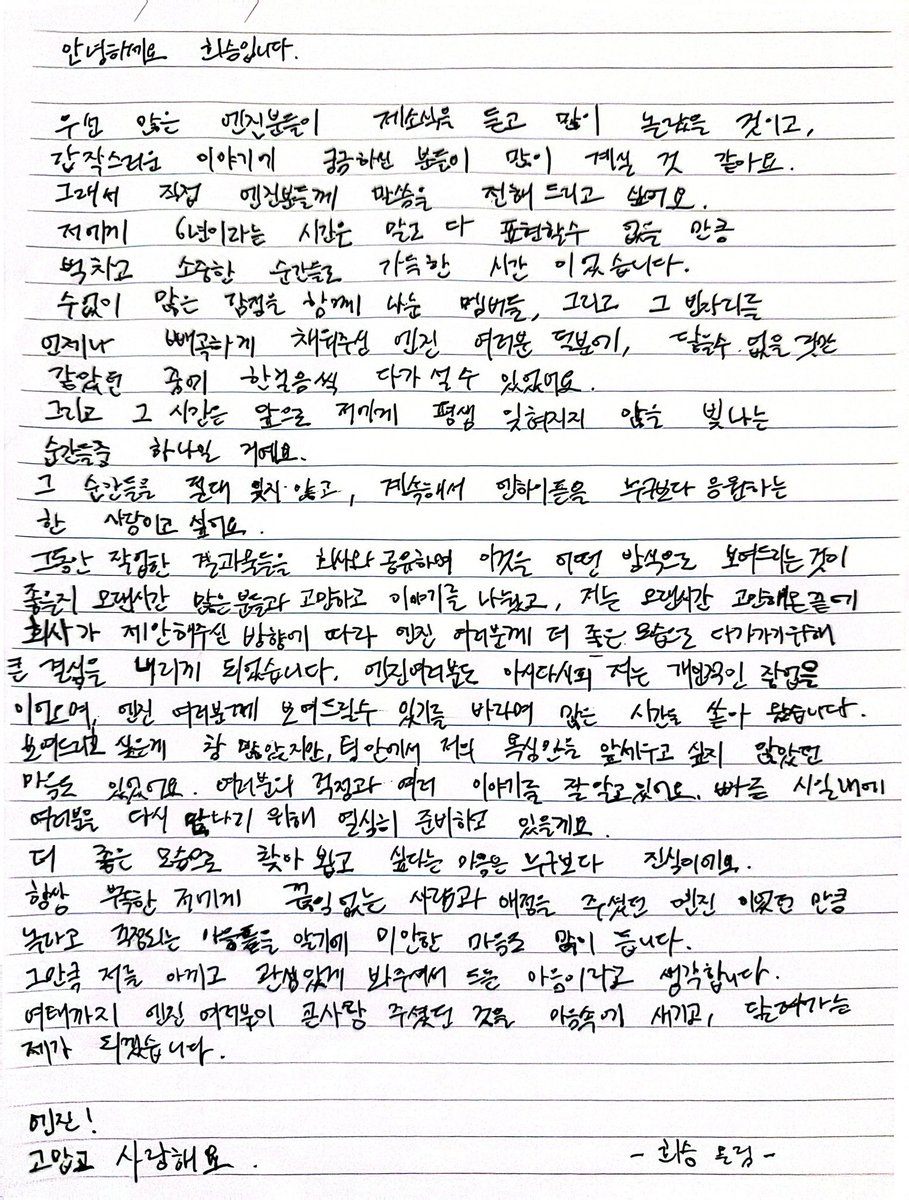 안녕하세요 희승입니다.
우선 많은 엔진분들이 제소식을 듣고 많이 놀랐을 것이고,
갑작스러운 이야기에 궁금하신 분들이 많이 계실 것 같아요.
그래서 직접 엔진분들께 말씀을 전해 드리고 싶어요.
저에게 6년이라는 시간은 말로 다 표현할수 없을 만큼
벅차고 소중한 순간들로 가득한 시간 이었습니다.
수없이 많은 감정을 함께 나눈 멤버들, 그리고 그 빈자리를
언제나 빼곡하게 채워주신 엔진 여러분 덕분에, 닿을수 없을 것만
같았던 꿈에 한걸음씩 다가 설 수 있었어요.
그리고 그 시간은 앞으로 저에게 평생 잊혀지지 않을 빛나는
순간들중 하나일 거예요.
그 순간들을 절대 잊지 않고, 계속해서 엔하이픈을 누구보다 응원하는
한 사람이고 싶어요.
그동안 작업한 결과물들을 회사와 공유하며 이것을 어떤 방식으로 보여드리는것이
좋을지 오랜시간 많은분들과 고민하고 이야기를 나눴고, 저는 오랜시간 고민해온끝에
회사가 제안해주신 방향에 따라 엔진 여러분께 더 좋은 모습으로 다가가기위해
큰 결심을 내리게 되었습니다. 엔진여러분도 아시다시피 저는 개인적인 작업을
이어오며, 엔진 여러분께 보여드릴수 있기를 바라며 많은 시간을 쏟아 왔습니다.
보여드리고 싶은게 참 많았지만, 팀 안에서 저의 욕심만을 앞세우고 싶지 않았던
마음도 있었어요. 여러분의 걱정과 여러 이야기를 잘 알고있어요. 빠른 시일내에
여러분을 다시 만나기 위해 열심히 준비하고 있을게요.
더 좋은 모습으로 찾아 뵙고 싶다는 마음은 누구보다 진심이에요.
항상 부족한 저에게 끊임없는 사랑과 애정을 주셨던 엔진 이였던 만큼
놀라고 걱정되는 마음들을 알기에 미안한 마음도 많이 듭니다.
그만큼 저를 아끼고 관심있게 봐주셔서 드는 마음이라고 생각합니다.
여태까지 엔진 여러분이 큰사랑 주셨던 것을 마음속에 새기고, 달려가는
제가 되겠습니다.
엔진!
고맙고 사랑해요.
- 희승 올림 -